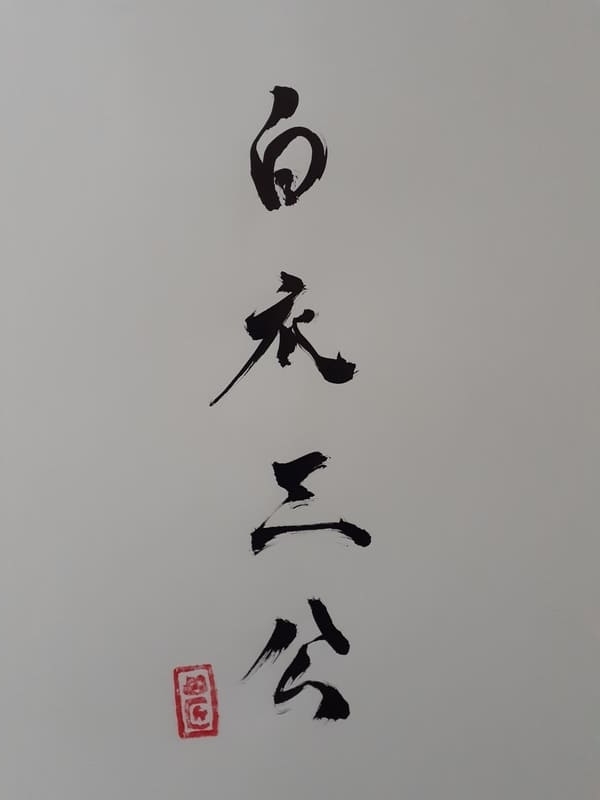 白衣三公